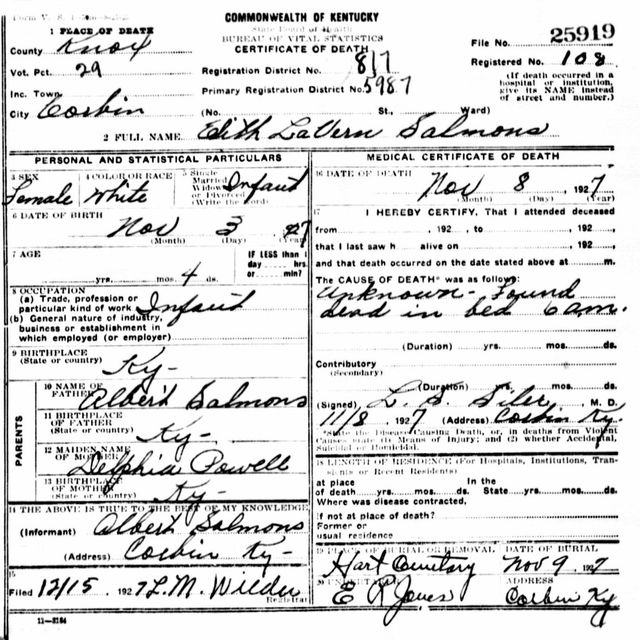 COMMONWEALTH OF KENTUCKY
State Board of Health
BUREAU OF VITAL STATISTICS
CERTIFICATE OF DEATH
1 PLACE OF DEATH
County Knox
Vot. Pct. 29
Inc. Town
City Corbin
File No. 25919
Registered No. 108
(If death occurred in a hospital or institution, give its NAME instead of street and number.)
Registration District No. 817
Primary Registration District No. 5987
(No. St., Ward)
2 FULL NAME Edith LaVern Salmons
PERSONAL AND STATISTICAL PARTICULARS
3 SEX Female
4 COLOR OR RACE White
5 Single Married Widow or Divorced (Write the word) Infant
6 DATE OF BIRTH Nov 3 27
(Month) (Day) (Year)
7 AGE
yrs. mos. 4 ds.
IF LESS than 1 day hrs. or min?
8 OCCUPATION
(a) Trade, profession or particular kind of work Infant
(b) General nature of industry, business or establishment in which employed (or employer)
9 BIRTHPLACE
(State or country) Ky-
PARENTS
10 NAME OF FATHER Albert Salmons
11 BIRTHPLACE OF FATHER
(State or country) Ky-
12 MAIDEN NAME OF MOTHER Delphia Powell
13 BIRTHPLACE OF MOTHER
(State or country) Ky-
14 THE ABOVE IS TRUE TO THE BEST OF MY KNOWLEDGE
(Informant) Albert Salmons
(Address) Corbin Ky-
15
Filed 12/15 1927 L.M. Wilder
Registrar
11-3184
MEDICAL CERTIFICATE OF DEATH
16 DATE OF DEATH
Nov 8, 1927
(Month) (Day) (Year)
17 I HEREBY CERTIFY, That I attended deceased
from , 192 , to , 192 ,
that I last saw h alive on , 192 ,
and that death occurred on the date stated above at m.
The CAUSE OF DEATH* was as follows:
Unknown- Found
dead in bed 6 am.
(Duration) yrs. mos. ds.
Contributory
(Secondary)
(Duration) yrs. mos. ds.
(Signed) L. S. Siler, M. D.
11/8 1927 (Address) Corbin Ky.
*State the Disease Causing Death, or, in deaths from Violent Causes state (1) Means of Injury; and (2) whether Accidental, Suicidal or Homicidal.
18 LENGTH OF RESIDENCE (For Hospitals, Institutions, Transients or Recent Residents)
at place of death yrs. mos. ds. In the State yrs. mos. ds.
Where was disease contracted,
if not at place of death?
Former or usual residence
19 PLACE OF BURIAL OR REMOVAL Hart Cemetary
DATE OF BURIAL Nov 9, 1927
20 UNDERTAKER E R Jones
ADDRESS Corbin Ky